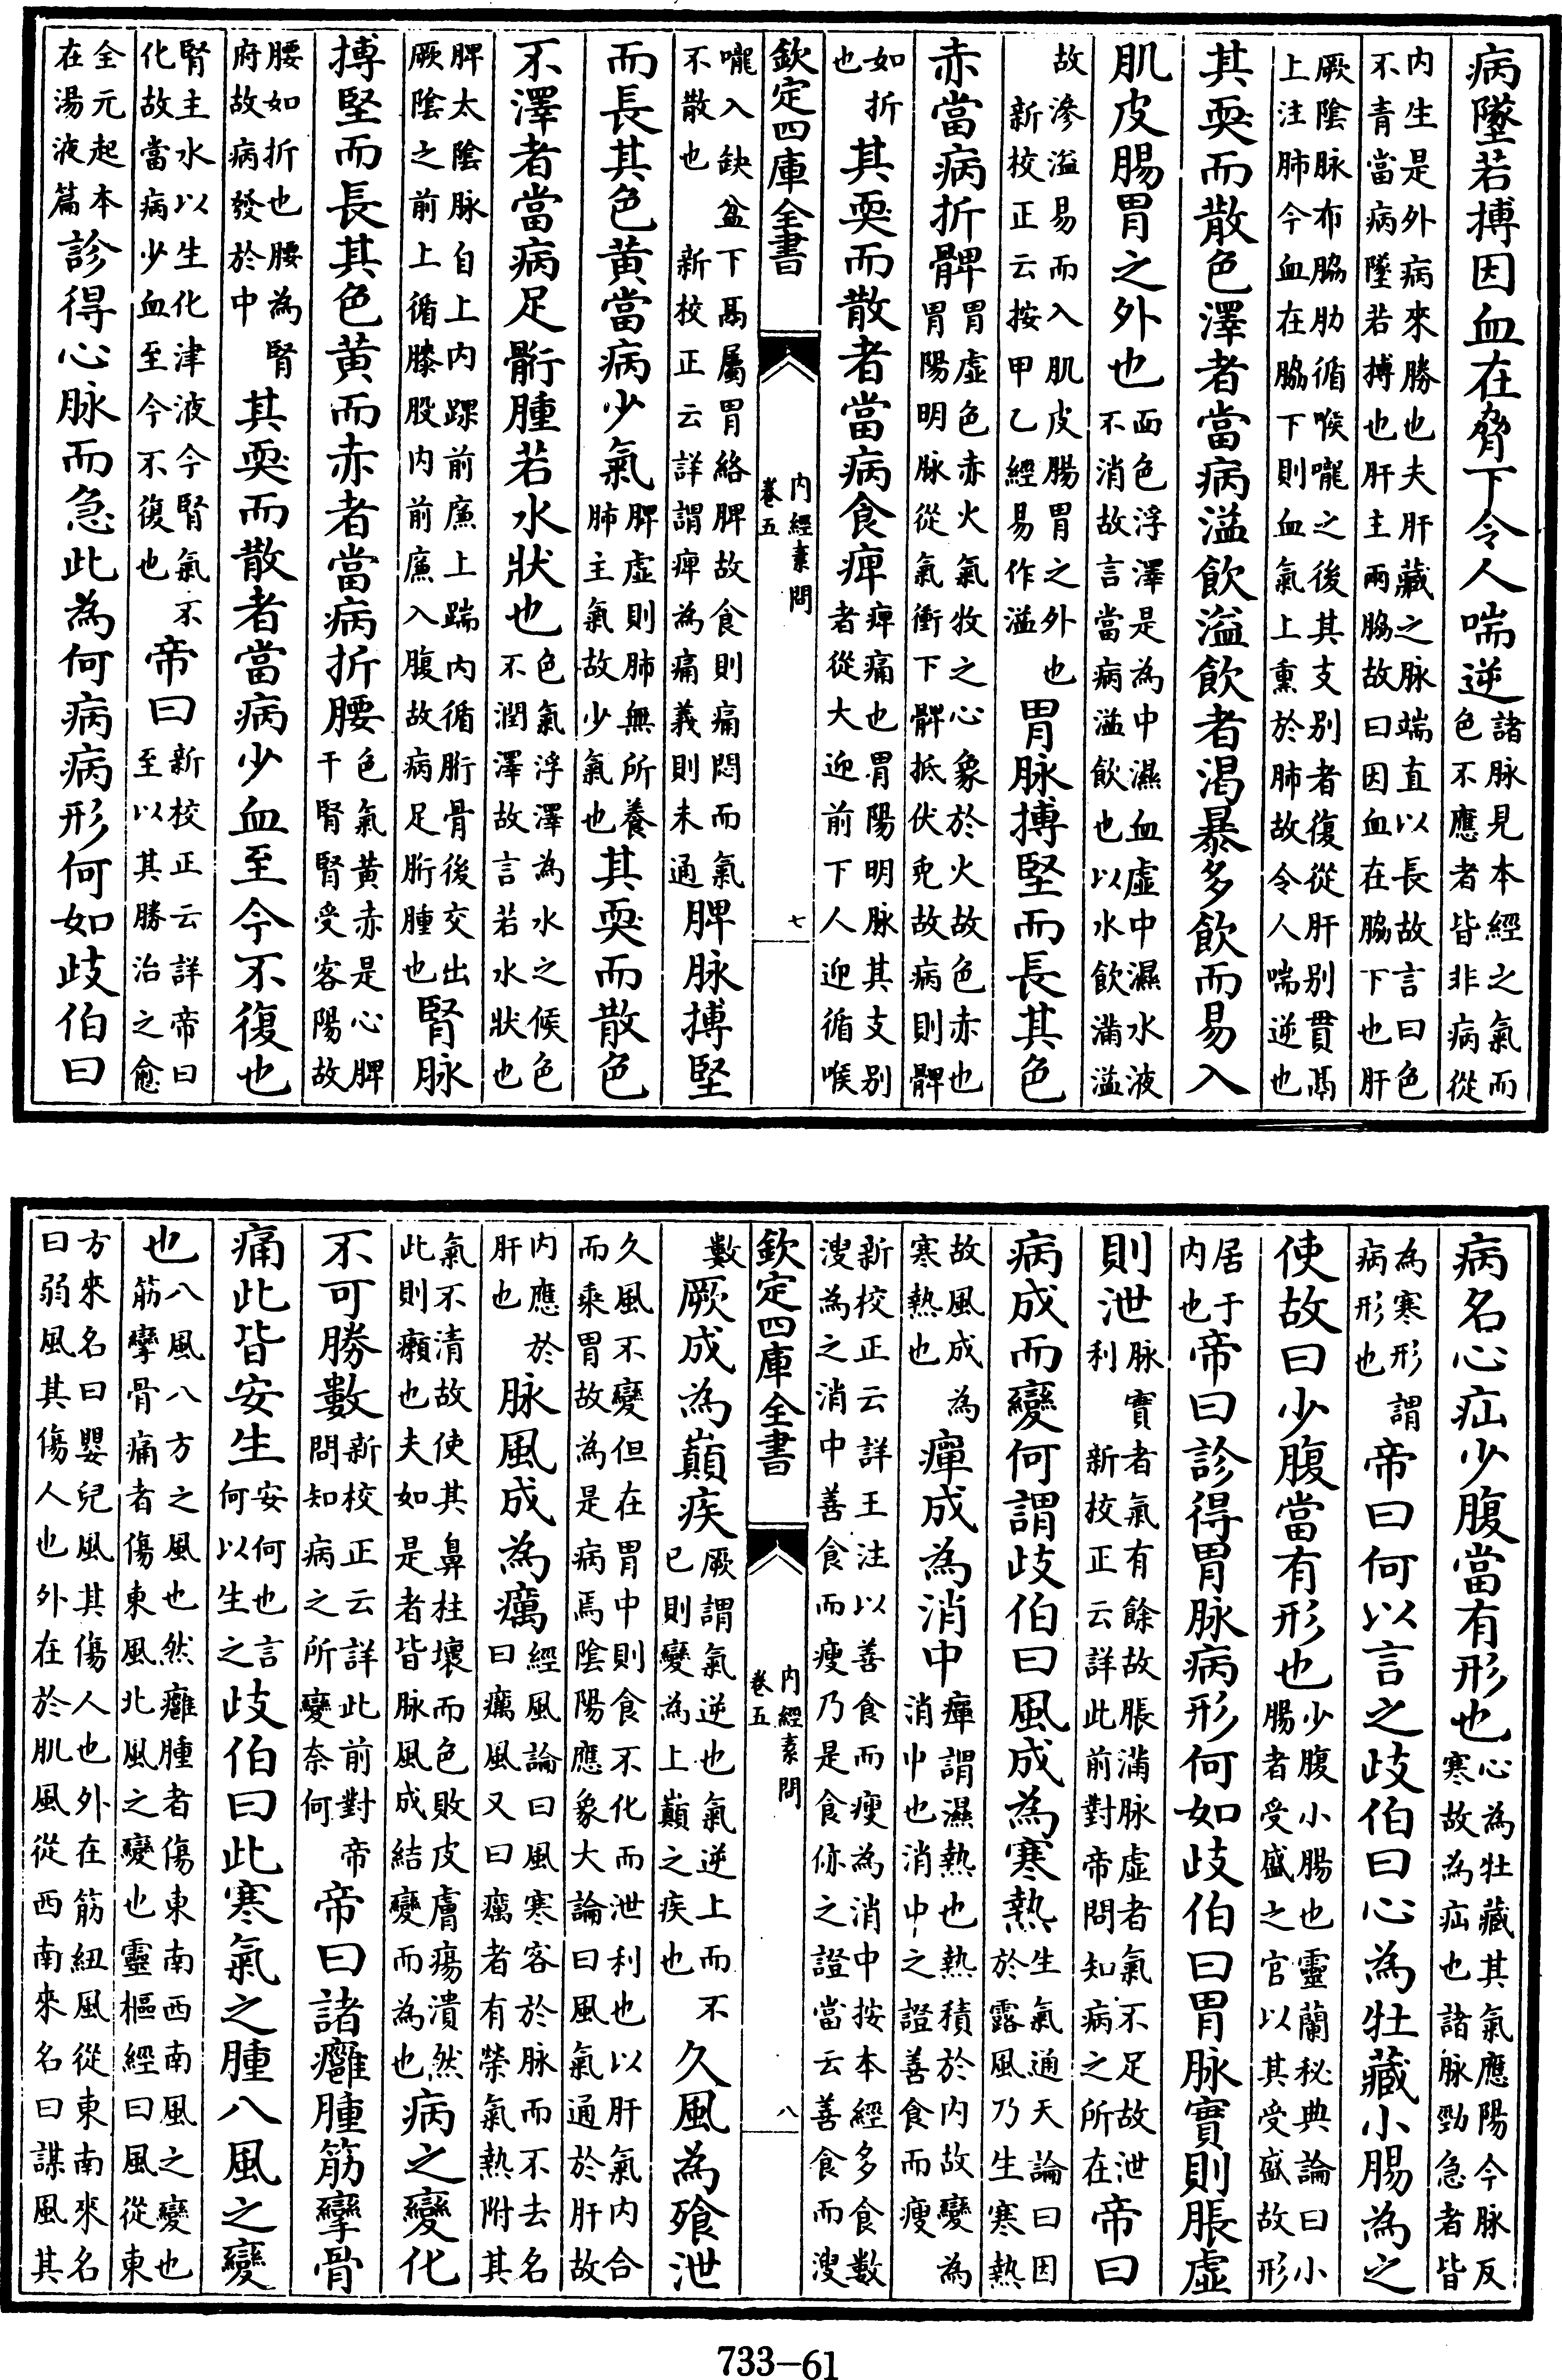 病墜若搏因血在脅下令人喘逆諸脉見本經之氣而色不應者皆非病從
内生是外病來勝也夫肝藏之脉端直以長故言曰色不青當病墜若搏也肝主兩脇故曰因血在脇下也肝
厥陰脉布脇肋循喉嚨之後其支别者復從肝别貫鬲上注肺今血在脇下則血氣上熏於肺故令人喘逆也
其耎而散色澤者當病溢飲溢飲者渴暴多飲而易入
肌皮腸胃之外也面色浮澤是為中濕血虛中濕水液不消故言當病溢飲也以水飲滿溢
故滲溢易而入肌皮腸胃之外也新校正云按甲乙經易作溢胃脉搏堅而長其色
赤當病折髀胃虛色赤火氣牧之心象於火故色赤也胃陽明脉從氣衝下髀抵伏兎故病則髀
如折也其耎而散者當病食痺痺痛也胃陽明脉其支别者從大迎前下人迎循喉
欽定四庫全書 内經素問卷五 七
嚨入缺盆下鬲屬胃絡脾故食則痛悶而氣不散也新校正云詳謂痺為痛義則未通脾脉搏堅
而長其色黄當病少氣脾虛則肺無所養肺主氣故少氣也其耎而散色
不澤者當病足䯒腫若水狀也色氣浮澤為水之候色不潤澤故言若水狀也
脾太陰脉自上内踝前亷上踹内循胻骨後交出厥陰之前上循膝股内前亷入腹故病足胻腫也腎脉
搏堅而長其色黄而赤者當病折腰色氣黄赤是心脾干腎腎受客陽故
腰如折也腰為腎府故病發於中其耎而散者當病少血至今不復也
腎主水以生化津液今腎氣不化故當病少血至今不復也帝曰新校正云詳帝曰至以其勝治之愈
全元起本在湯液篇診得心脉而急此為何病病形何如歧伯曰
病名心疝少腹當有形也心為牡藏其氣應陽今脉反寒故為疝也諸脉勁急者皆
為寒形謂病形也帝曰何以言之歧伯曰心為牡藏小腸為之
使故曰少腹當有形也少腹小腸也靈蘭秘典論曰小腸者受盛之官以其受盛故形
居于内也帝曰診得胃脉病形何如歧伯曰胃脉實則脹虛
則泄脉實者氣有餘故脹滿脉虛者氣不足故泄利新校正云詳此前對帝問知病之所在帝曰
病成而變何謂歧伯曰風成為寒熱生氣通天論曰因於露風乃生寒熱
故風成為寒熱也癉成為消中癉謂濕熱也熱積於内故變為消中也消中之證善食而瘦
新校正云詳王注以善食而瘦為消中按本經多食數溲為之消中善食而瘦乃是食㑊之證當云善食而溲
數厥成為巔疾厥謂氣逆也氣逆上而不已則變為上巔之疾也久風為飱泄
欽定四庫全書 内經素問卷五 八
久風不變但在胃中則食不化而泄利也以肝氣内合而乘胃故為是病焉陰陽應象大論曰風氣通於肝故
内應於肝也脉風成為癘經風論曰風寒客於脉而不去名曰癘風又曰癘者有榮氣熱附其
氣不清故使其鼻柱壞而色敗皮膚瘍潰然此則癩也夫如是者皆脉風成結變而為也病之變化
不可勝數新校正云詳此前對帝問知病之所變奈何帝曰諸癰腫筋攣骨
痛此皆安生安何也言何以生之歧伯曰此寒氣之腫八風之變
也八風八方之風也然癰腫者傷東南西南風之變也筋攣骨痛者傷東風北風之變也靈樞經曰風從東
方來名曰嬰兒風其傷人也外在筋紐風從東南來名曰弱風其傷人也外在於肌風從西南來名曰謀風其
733-61